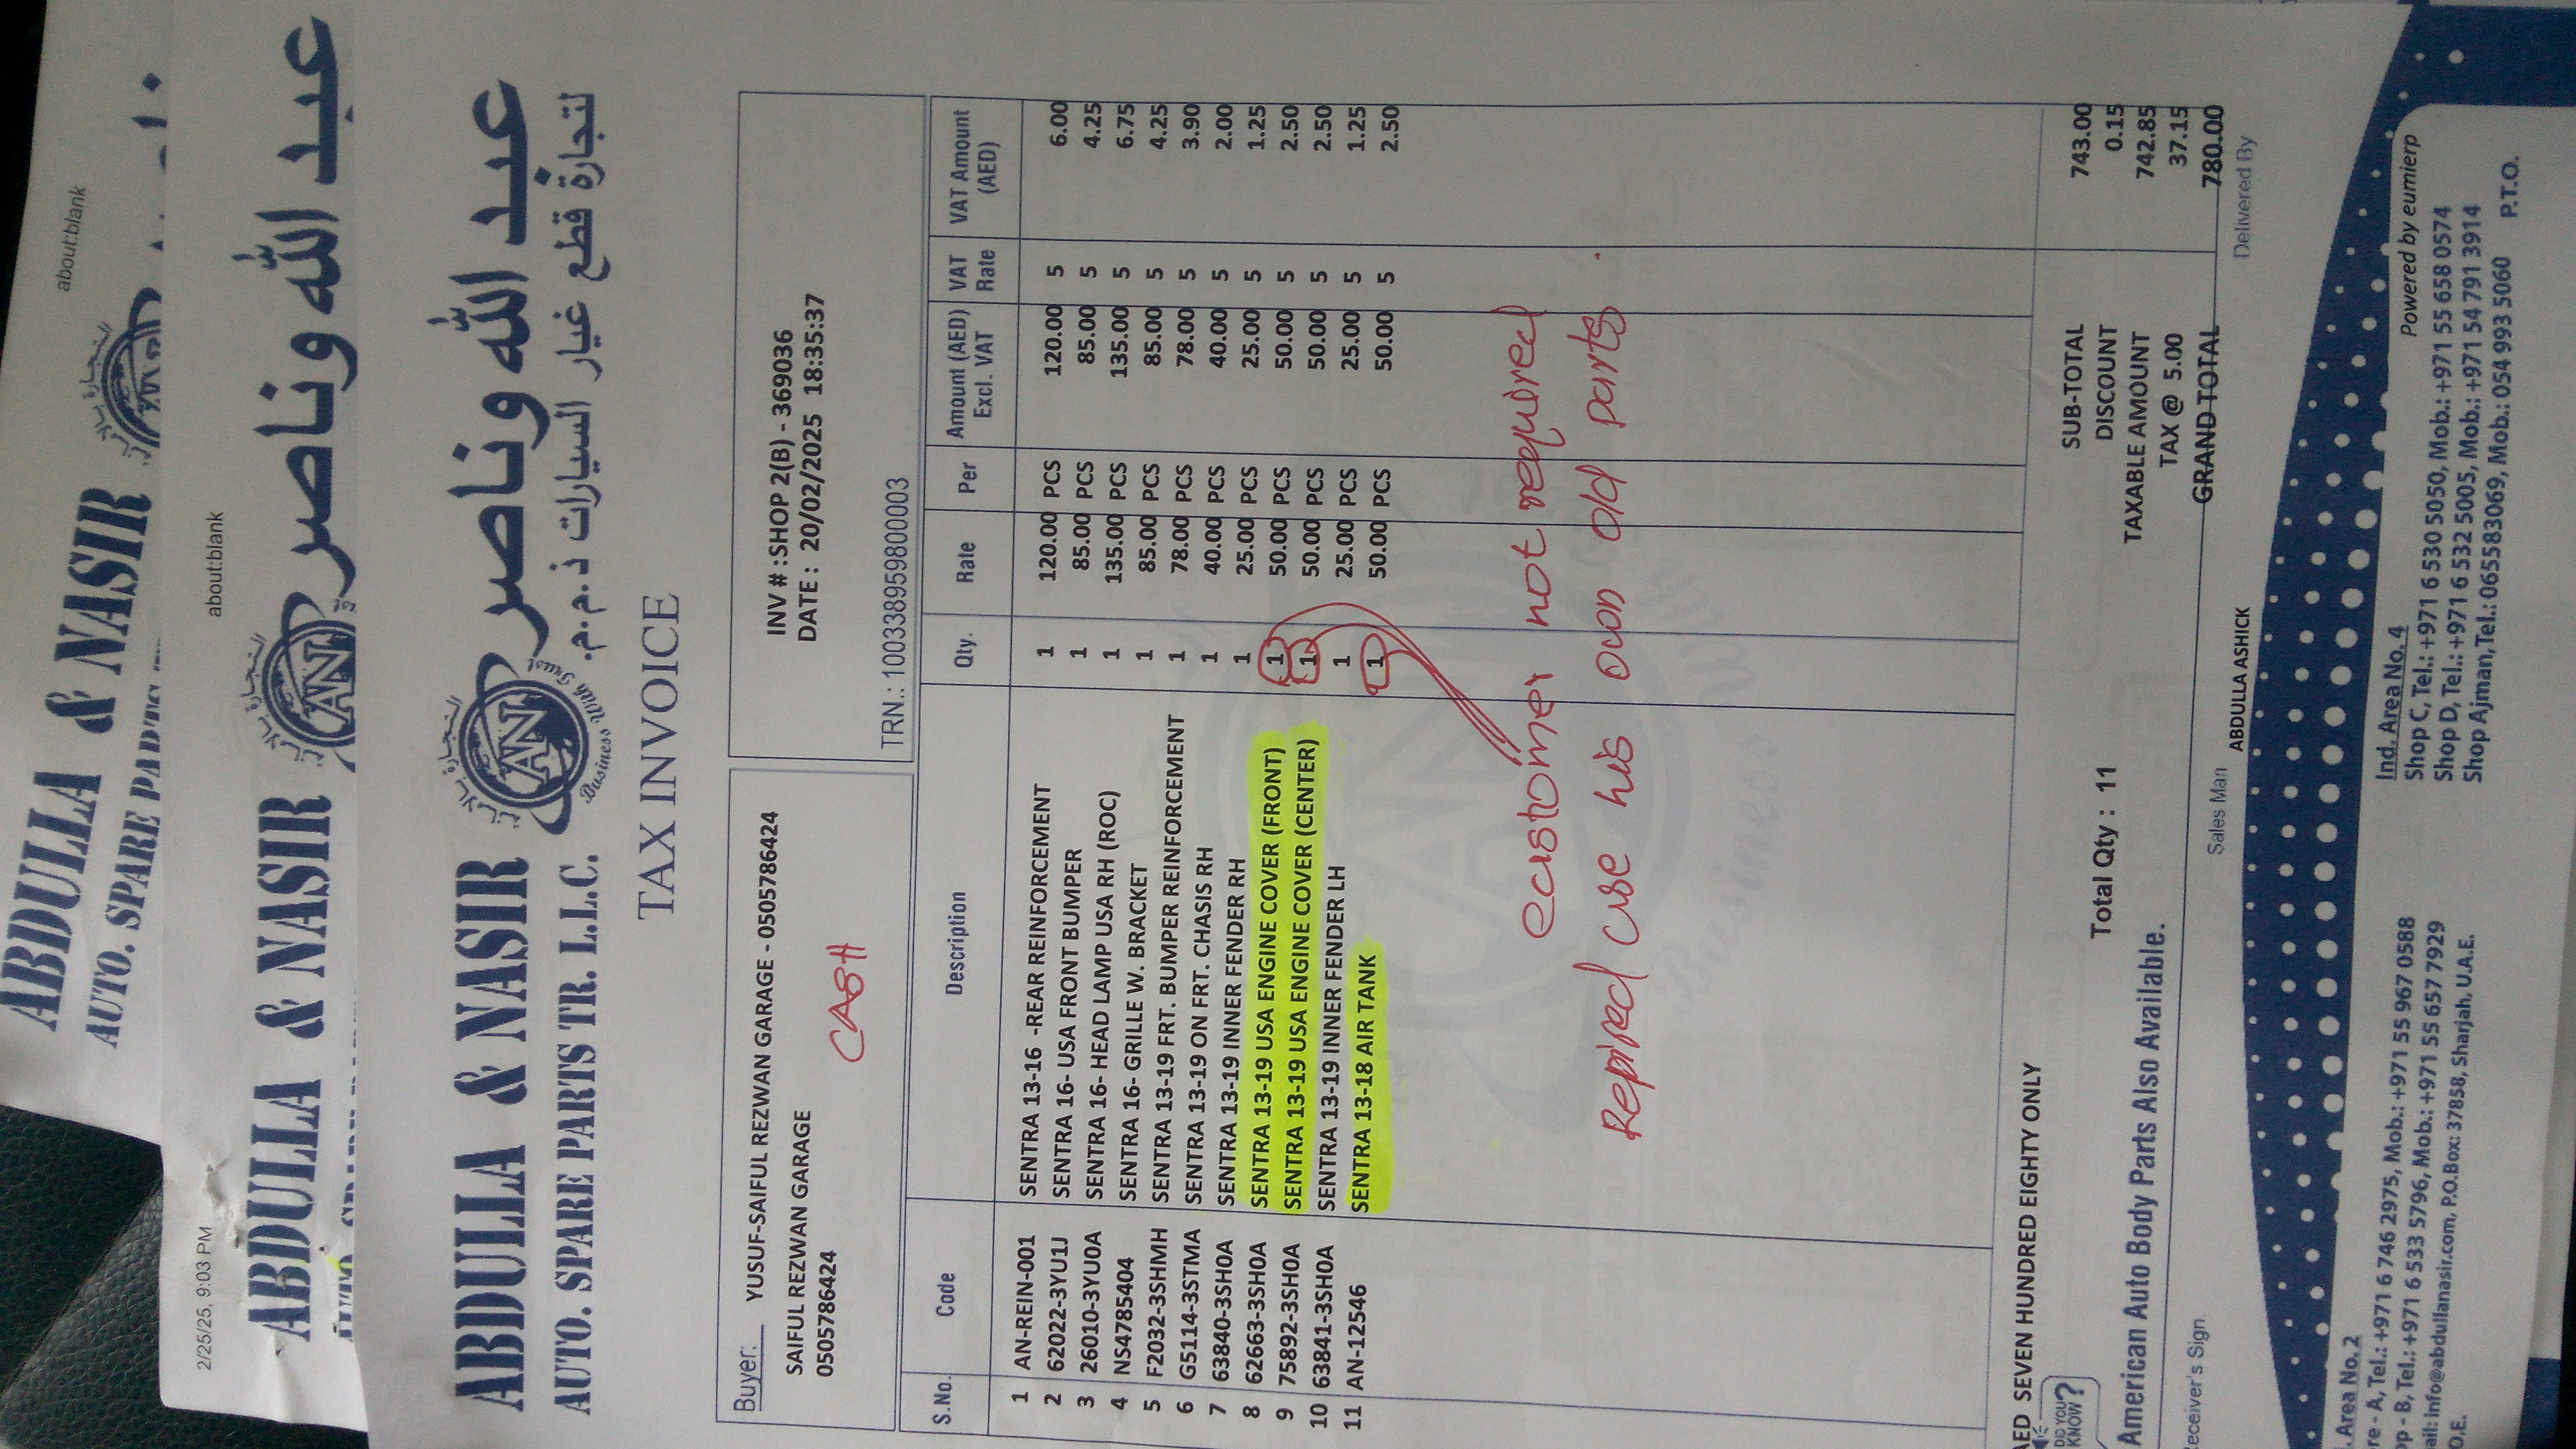 ABDULLA & NASIR
AUTO. SPARE
about:blank
2/25/25, 9:03 PM
about:blank
ABDULLA & NASIR
AN
عبد الله وناصر
ABDULLA & NASIR
AUTO. SPARE PARTS TR. L.L.C.
AN
Business With Trust
عبد الله وناصر
لتجارة قطع غيار السيارات ذ.م.م.
TAX INVOICE
Buyer: YUSUF-SAIFUL REZWAN GARAGE - 0505786424
SAIFUL REZWAN GARAGE
0505786424
CASH
INV # :SHOP 2(B) - 369036
DATE : 20/02/2025 18:35:37
TRN.: 100338959800003
S.No. Code Description Qty. Rate Per Amount (AED) Excl. VAT VAT Rate VAT Amount (AED)
1 AN-REIN-001 SENTRA 13-16 -REAR REINFORCEMENT 1 120.00 PCS 120.00 5 6.00
2 62022-3YU1J SENTRA 16- USA FRONT BUMPER 1 85.00 PCS 85.00 5 4.25
3 26010-3YU0A SENTRA 16- HEAD LAMP USA RH (ROC) 1 135.00 PCS 135.00 5 6.75
4 NS4785404 SENTRA 16- GRILLE W. BRACKET 1 85.00 PCS 85.00 5 4.25
5 F2032-3SHMH SENTRA 13-19 FRT. BUMPER REINFORCEMENT 1 78.00 PCS 78.00 5 3.90
6 G5114-3STMA SENTRA 13-19 ON FRT. CHASIS RH 1 40.00 PCS 40.00 5 2.00
7 63840-3SH0A SENTRA 13-19 INNER FENDER RH 1 25.00 PCS 25.00 5 1.25
8 62663-3SH0A SENTRA 13-19 USA ENGINE COVER (FRONT) 1 50.00 PCS 50.00 5 2.50
9 75892-3SH0A SENTRA 13-19 USA ENGINE COVER (CENTER) 1 50.00 PCS 50.00 5 2.50
10 63841-3SH0A SENTRA 13-19 INNER FENDER LH 1 25.00 PCS 25.00 5 1.25
11 AN-12546 SENTRA 13-18 AIR TANK 1 50.00 PCS 50.00 5 2.50
customer not required
Repired use his own old parts.
AED SEVEN HUNDRED EIGHTY ONLY
SUB-TOTAL 743.00
DISCOUNT 0.15
TAXABLE AMOUNT 742.85
TAX @ 5.00 37.15
GRAND TOTAL 780.00
Total Qty : 11
DID YOU KNOW?
American Auto Body Parts Also Available.
Receiver's Sign.
Sales Man
ABDULLA ASHICK
Delivered By
Powered by eumierp
Area No. 2
re - A, Tel.: +971 6 746 2975, Mob.: +971 55 967 0588
op - B, Tel.: +971 6 533 5796, Mob.: +971 55 657 7929
ail: info@abdullanasir.com, P.O.Box: 37858, Sharjah, U.A.E.
Ind. Area No. 4
Shop C, Tel.: +971 6 530 5050, Mob.: +971 55 658 0574
Shop D, Tel.: +971 6 532 5005, Mob.: +971 54 791 3914
Shop Ajman, Tel.: 065583069, Mob.: 054 993 5060
O.E.
P.T.O.